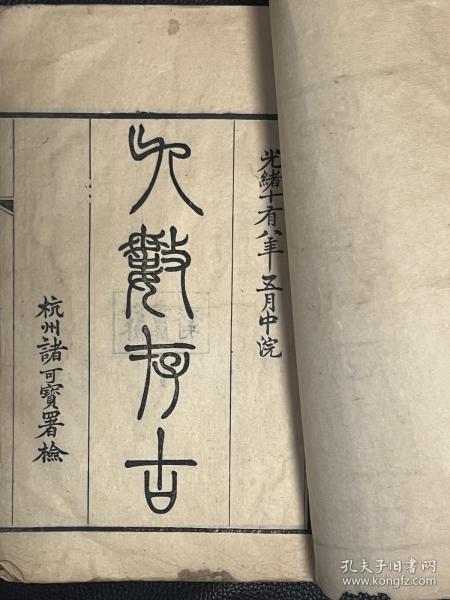 光緒十有八年五月中浣
九數存古
杭州諸可寶署檢
孔夫子旧书网
www.kongfz.com